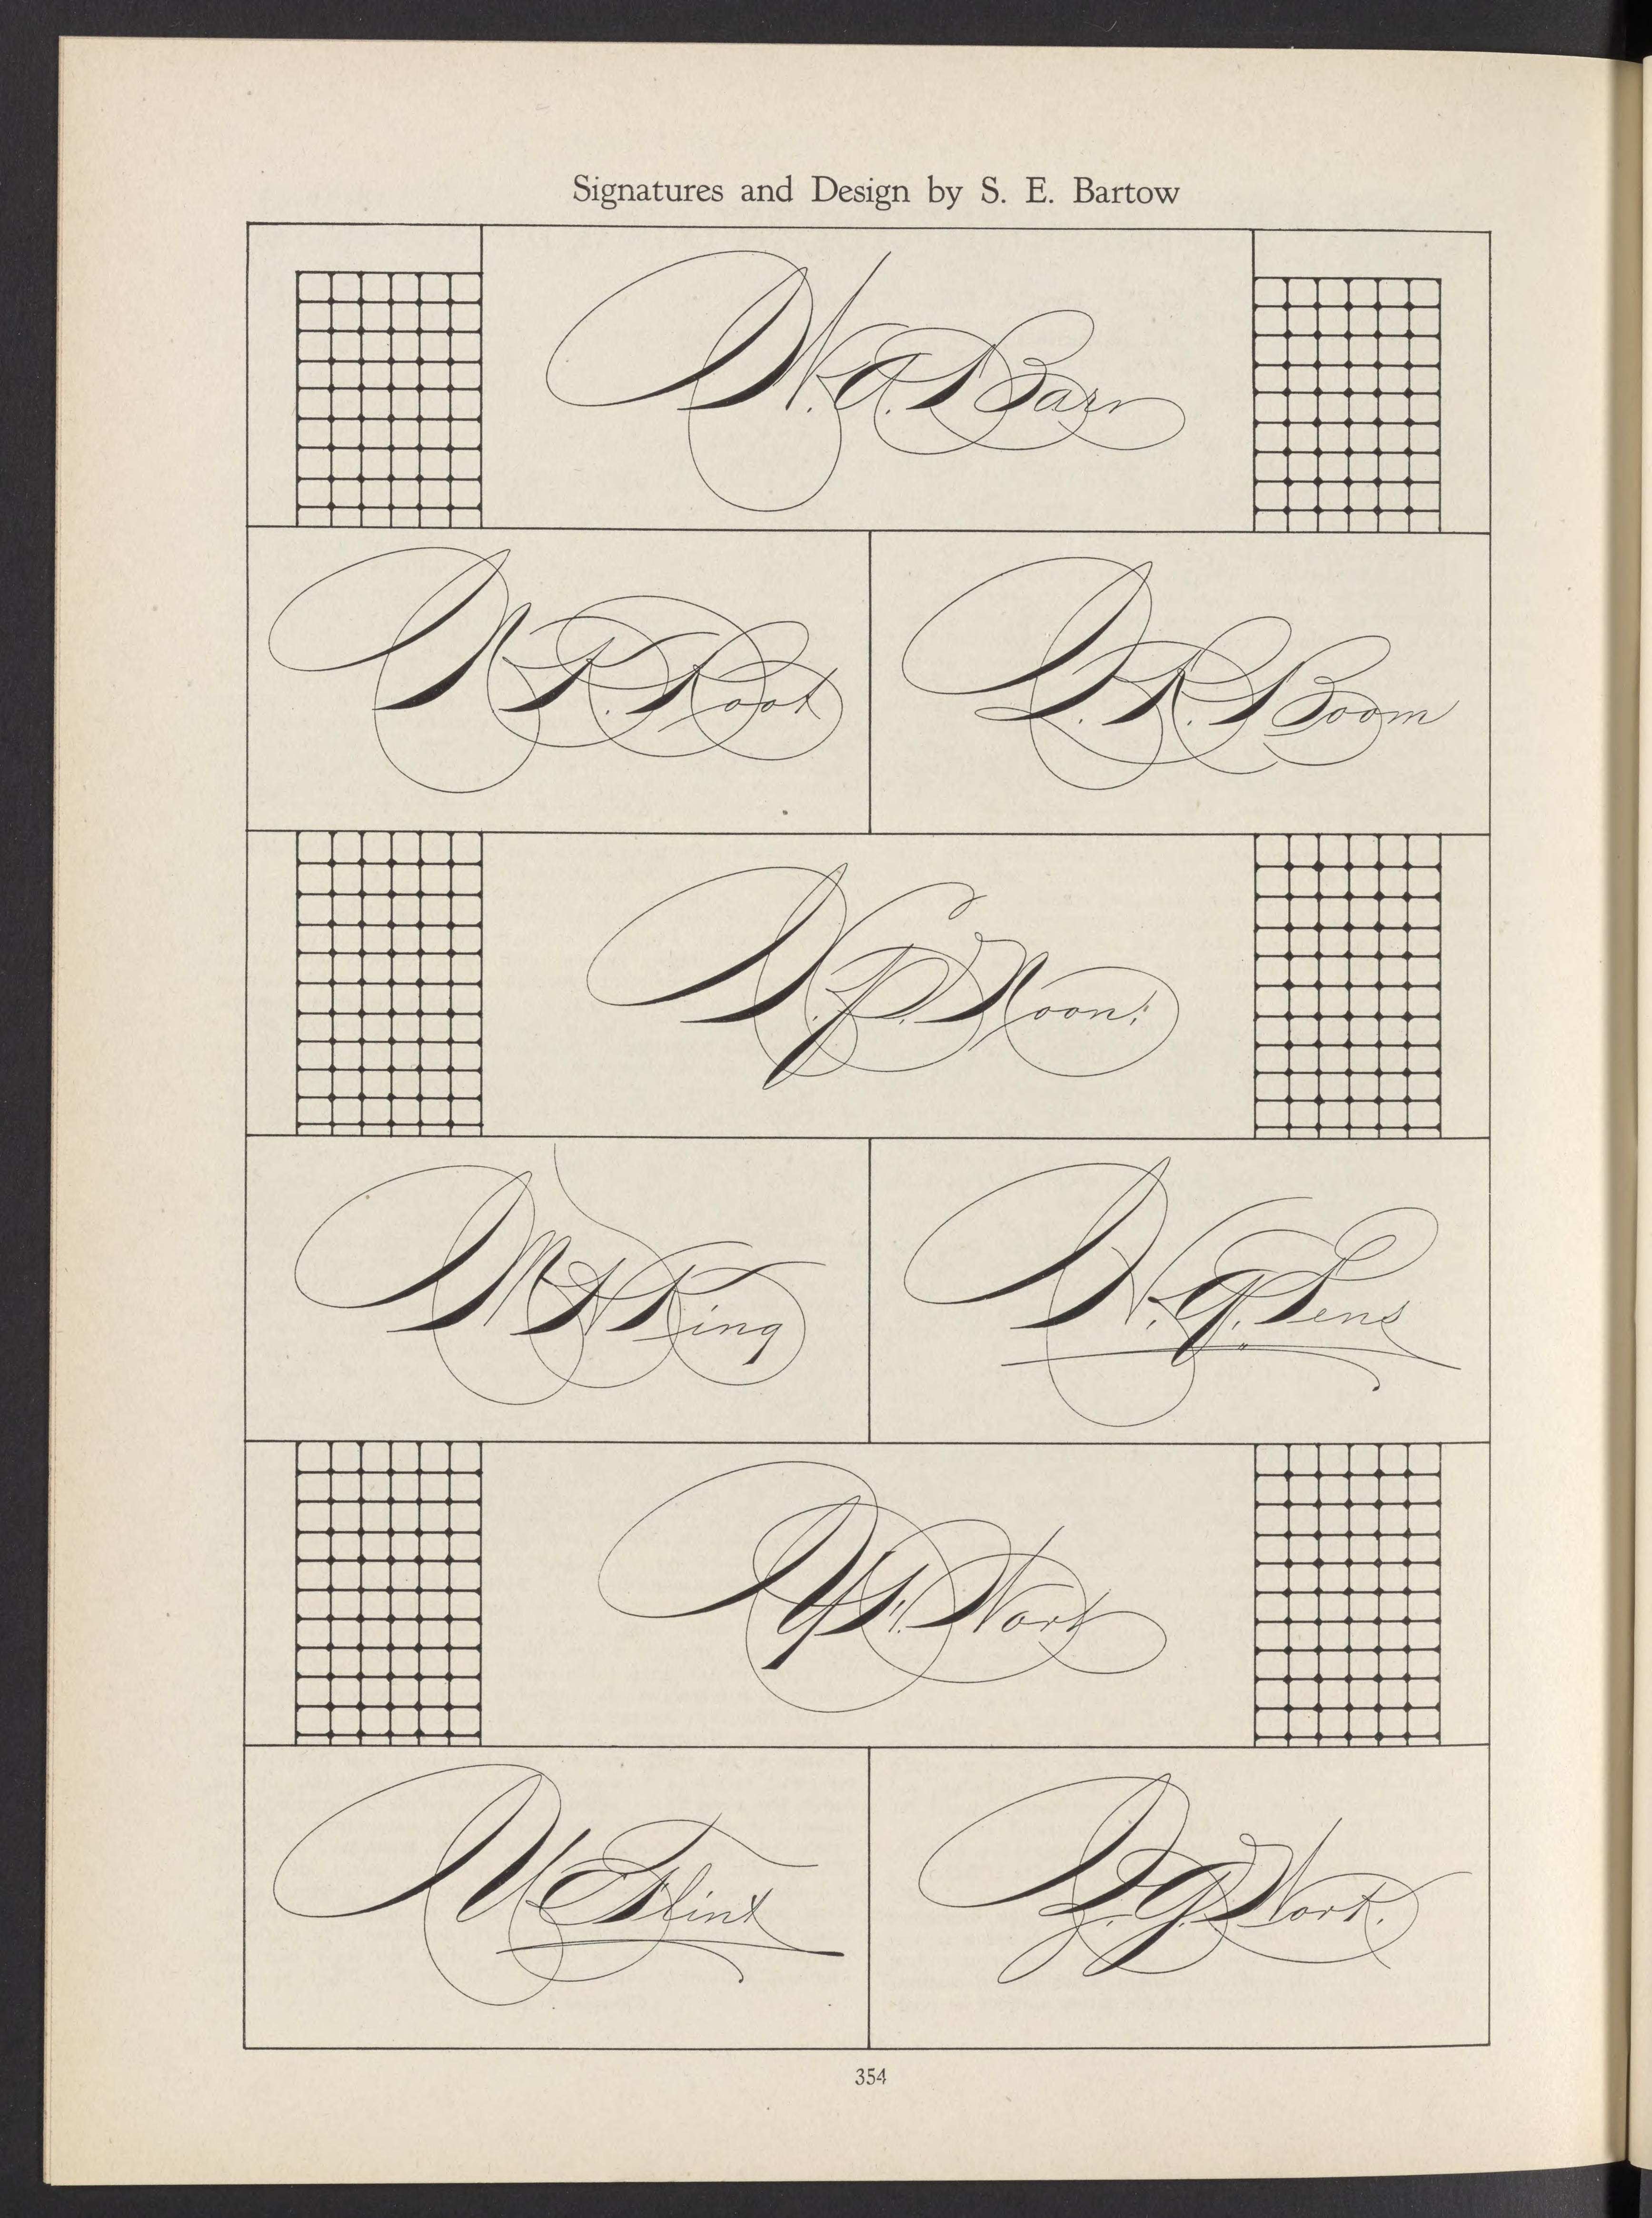 Signatures and Design by S. E. Bartow
W. A. Barn
N. P. Root
L. R. Boom
V. P. Noon.
M. N. King
W. G. Lens
Y. S. Work
U. C. Flint
Z. G. Work.
354